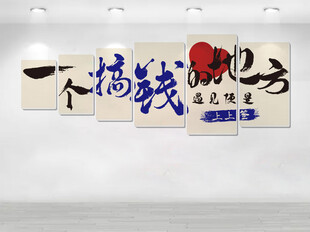 一个搞钱的地方
遇见便是
上上签